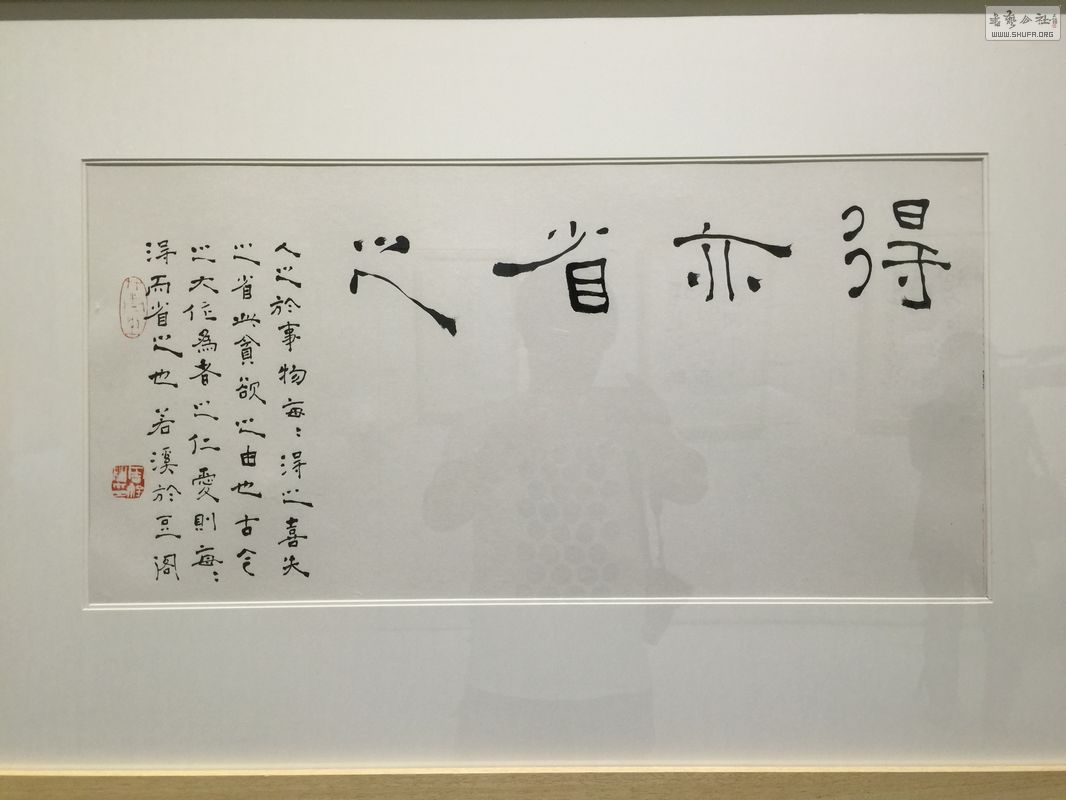 得亦省之
人之於事物每々得之喜失
之省此貪欲之由也古今
之大位為者之仁愛則每々
得而省之也若溪於豆阁
書藝公社
WWW.SHUFA.ORG